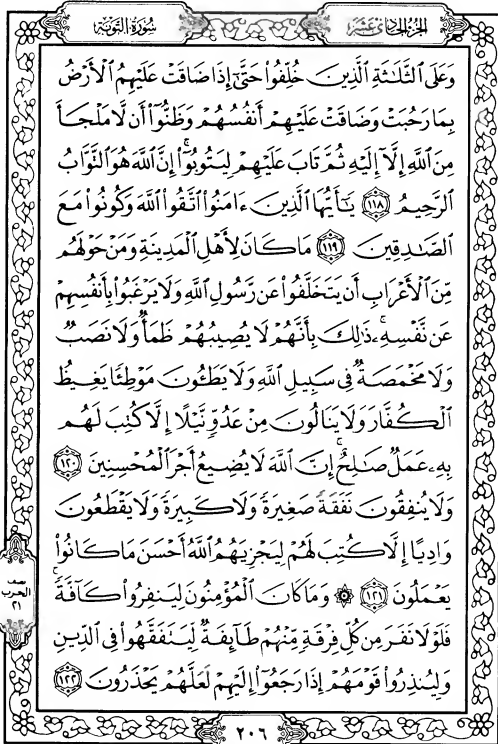 سُورَةُ التَّوْبَةِ
الجُزْءُ الحَادِي عَشَرَ
وَعَلَى ٱلثَّلَٰثَةِ ٱلَّذِينَ خُلِّفُوا۟ حَتَّىٰٓ إِذَا ضَاقَتْ عَلَيْهِمُ ٱلْأَرْضُ
بِمَا رَحُبَتْ وَضَاقَتْ عَلَيْهِمْ أَنفُسُهُمْ وَظَنُّوٓا۟ أَن لَّا مَلْجَأَ
مِنَ ٱللَّهِ إِلَّآ إِلَيْهِ ثُمَّ تَابَ عَلَيْهِمْ لِيَتُوبُوٓا۟ ۚ إِنَّ ٱللَّهَ هُوَ ٱلتَّوَّابُ
ٱلرَّحِيمُ ١١٨ يَٰٓأَيُّهَا ٱلَّذِينَ ءَامَنُوا۟ ٱتَّقُوا۟ ٱللَّهَ وَكُونُوا۟ مَعَ
ٱلصَّٰدِقِينَ ١١٩ مَا كَانَ لِأَهْلِ ٱلْمَدِينَةِ وَمَنْ حَوْلَهُم
مِّنَ ٱلْأَعْرَابِ أَن يَتَخَلَّفُوا۟ عَن رَّسُولِ ٱللَّهِ وَلَا يَرْغَبُوا۟ بِأَنفُسِهِمْ
عَن نَّفْسِهِۦ ۚ ذَٰلِكَ بِأَنَّهُمْ لَا يُصِيبُهُمْ ظَمَأٌ وَلَا نَصَبٌ
وَلَا مَخْمَصَةٌ فِى سَبِيلِ ٱللَّهِ وَلَا يَطَـُٔونَ مَوْطِئًا يَغِيظُ
ٱلْكُفَّارَ وَلَا يَنَالُونَ مِنْ عَدُوٍّ نَّيْلًا إِلَّا كُتِبَ لَهُم
بِهِۦ عَمَلٌ صَٰلِحٌ ۚ إِنَّ ٱللَّهَ لَا يُضِيعُ أَجْرَ ٱلْمُحْسِنِينَ ١٢٠
وَلَا يُنفِقُونَ نَفَقَةً صَغِيرَةً وَلَا كَبِيرَةً وَلَا يَقْطَعُونَ
وَادِيًا إِلَّا كُتِبَ لَهُمْ لِيَجْزِيَهُمُ ٱللَّهُ أَحْسَنَ مَا كَانُوا۟
يَعْمَلُونَ ١٢١ ۞ وَمَا كَانَ ٱلْمُؤْمِنُونَ لِيَنفِرُوا۟ كَآفَّةً ۚ
فَلَوْلَا نَفَرَ مِن كُلِّ فِرْقَةٍ مِّنْهُمْ طَآئِفَةٌ لِّيَتَفَقَّهُوا۟ فِى ٱلدِّينِ
وَلِيُنذِرُوا۟ قَوْمَهُمْ إِذَا رَجَعُوٓا۟ إِلَيْهِمْ لَعَلَّهُمْ يَحْذَرُونَ ١٢٢
نصف
الحزب
٢١
٢٠٦